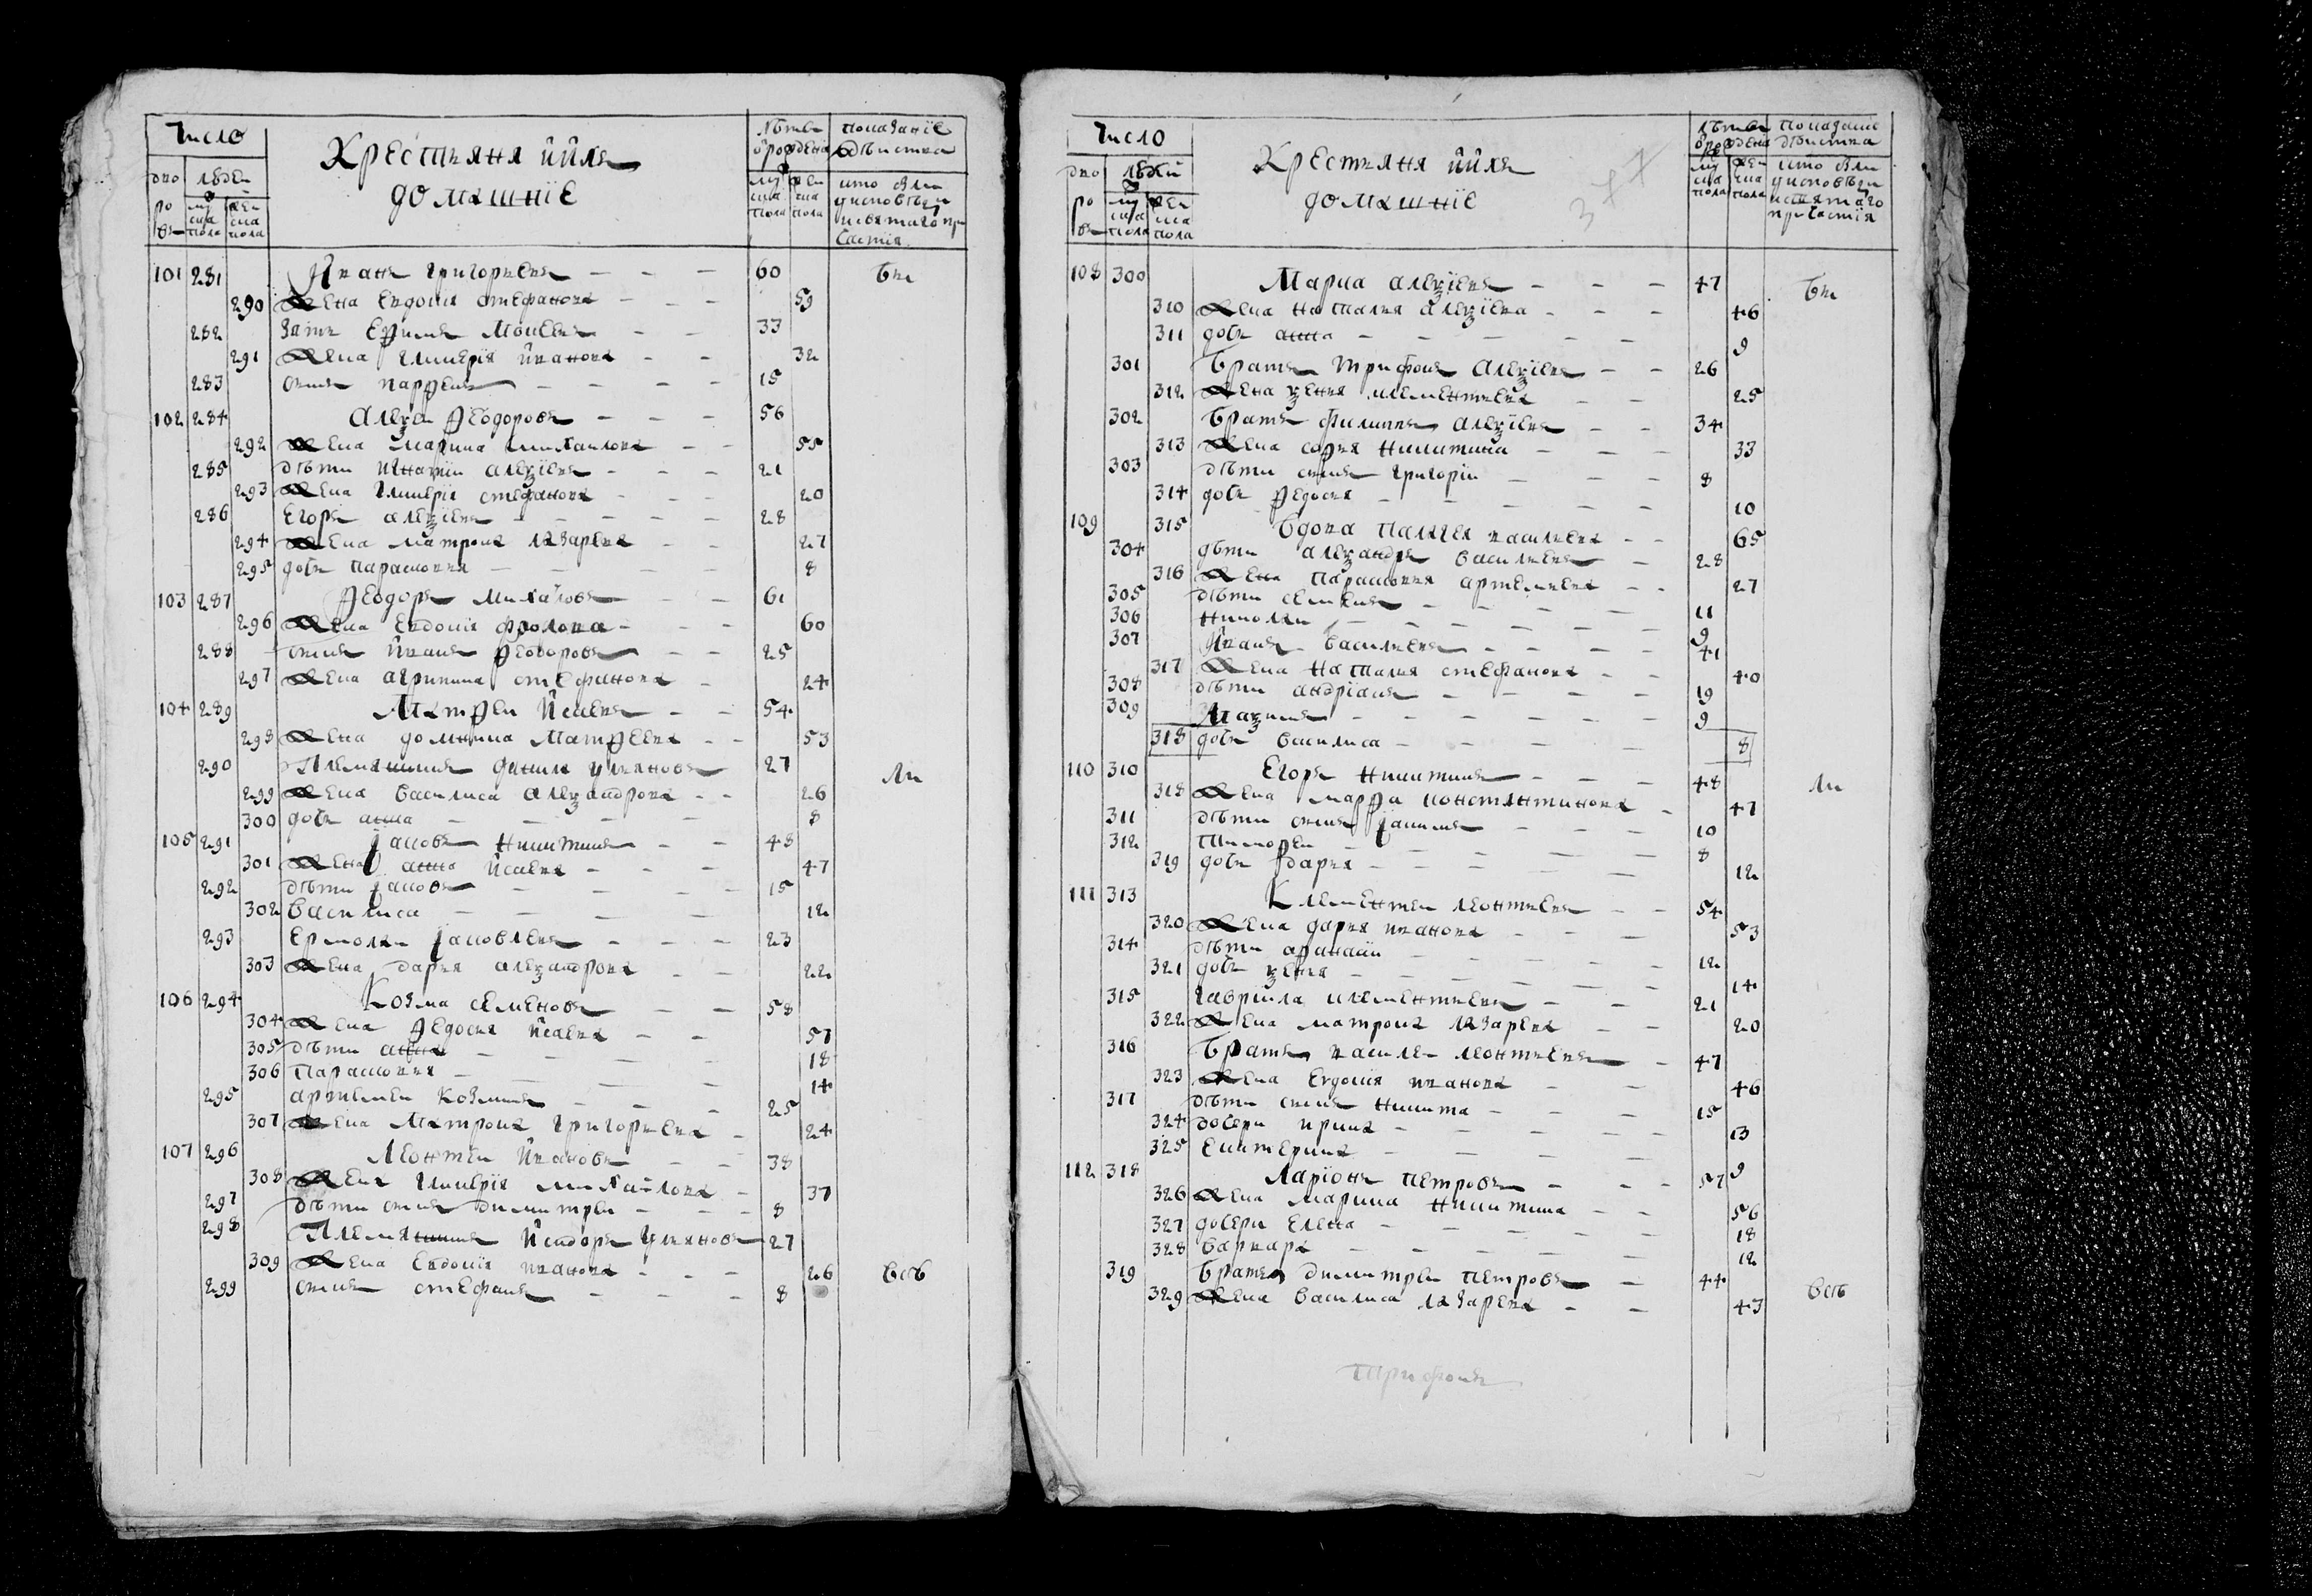 Число
Крестьяня ииля
домашнїе
Лѣтъ
показанїе
дво
людеи
му
же
что были
ро
ска
ска
въ
пола
пола
101 281 Иванъ Григорьевъ 60 Бы
290 жена Евдокия Стефанова 59
282 зять Ефимъ Моисеевъ 33
291 жена Гликерїя Иванова 32
283 сынъ Парфенъ 15
102 284 Алеѯѣи Феодоровъ 56
292 жена Марина Михаилова 55
285 дѣти Игнатїи Алеѯїевъ 21
293 жена Гликерїя Стефанова 20
286 Егоръ Алеѯїевъ 28
294 жена Матрона Лазарева 27
295 дочь Парасковия 8
103 287 Феодоръ Михаиловъ 61
296 жена Евдокия Фролова 60
288 сынъ Иванъ Феодоровъ 25
297 жена Агрипина Стефанова 24
104 289 Матфеи Исаевъ 54
298 жена Домника Матфеева 53
290 Племянникъ Данила Ульяновъ 27 ли
299 жена Василиса Алеѯандрова 26
300 дочь Анна 8
105 291 Іаковъ Никитинъ 48
301 жена Анна Исаева 47
292 дѣти Іаковъ 15
302 Василиса 12
293 Ермолаи Іаковлевъ 23
303 жена Дарья Алеѯандрова 22
106 294 Козма Семеновъ 58
304 жена Федосия Исаева 57
305 дѣти Анна 18
306 Парасковия 14
295 Артемеи Козминъ 25
307 жена Матрона Григорьева 24
107 296 Леонтеи Ивановъ 38
308 жена Гликерїя Михаилова 37
297 дѣти сынъ Димитреи 8
298 Племянникъ Исидоръ Ульяновъ 27
309 жена Евдокия Иванова 26 всѣ
299 сынъ Стефанъ 8
Число
Крестьяня ииля
домашнїе
37
108 300 Марка Алеѯїевъ 47 Бы
310 жена Наталия Алеѯїева 46
311 дочь Анна 9
301 Братъ Трифонъ Алеѯїевъ 26
312 жена Ѯения Клементьева 25
302 Братъ Филипъ Алеѯїевъ 34
313 жена София Никитина 33
303 дѣти сынъ Григорїи 8
314 дочь Федосия 10
109 315 Вдова Палагея Васильева 65
304 дѣти Алеѯандръ Васильевъ 28
316 жена Парасковия Артемьева 27
305 дѣти Семенъ 11
306 Николаи 9
307 Иванъ Васильевъ 41
317 жена Наталия Стефанова 40
308 дѣти Андрїанъ 19
309 Маѯимъ 9
318 дочь Василиса 8
110 310 Егоръ Никитинъ 48 ли
318 жена Марфа Константинова 47
311 дѣти сынъ Іакимъ 10
312 Тимофеи 8
319 дочь Дария 12
111 313 Клементеи Леонтьевъ 54
320 жена Дария Иванова 53
314 дѣти Афанасїи 12
321 дочь Ѯения 14
315 Гаврила Клементьевъ 21
322 жена Матрона Лазарева 20
316 Братъ Василеи Леонтьевъ 47
323 жена Евдокия Иванова 46
317 дѣти сынъ Никита 15
324 дочери Ирина 13
325 Екатерина 9
112 318 Ларїонъ Петровъ 57
326 жена Марина Никитина 56
327 дочери Елена 18
328 Варвара 12
319 Братъ Димитреи Петровъ 44 всѣ
329 жена Василиса Лазарева 43
Трифонъ